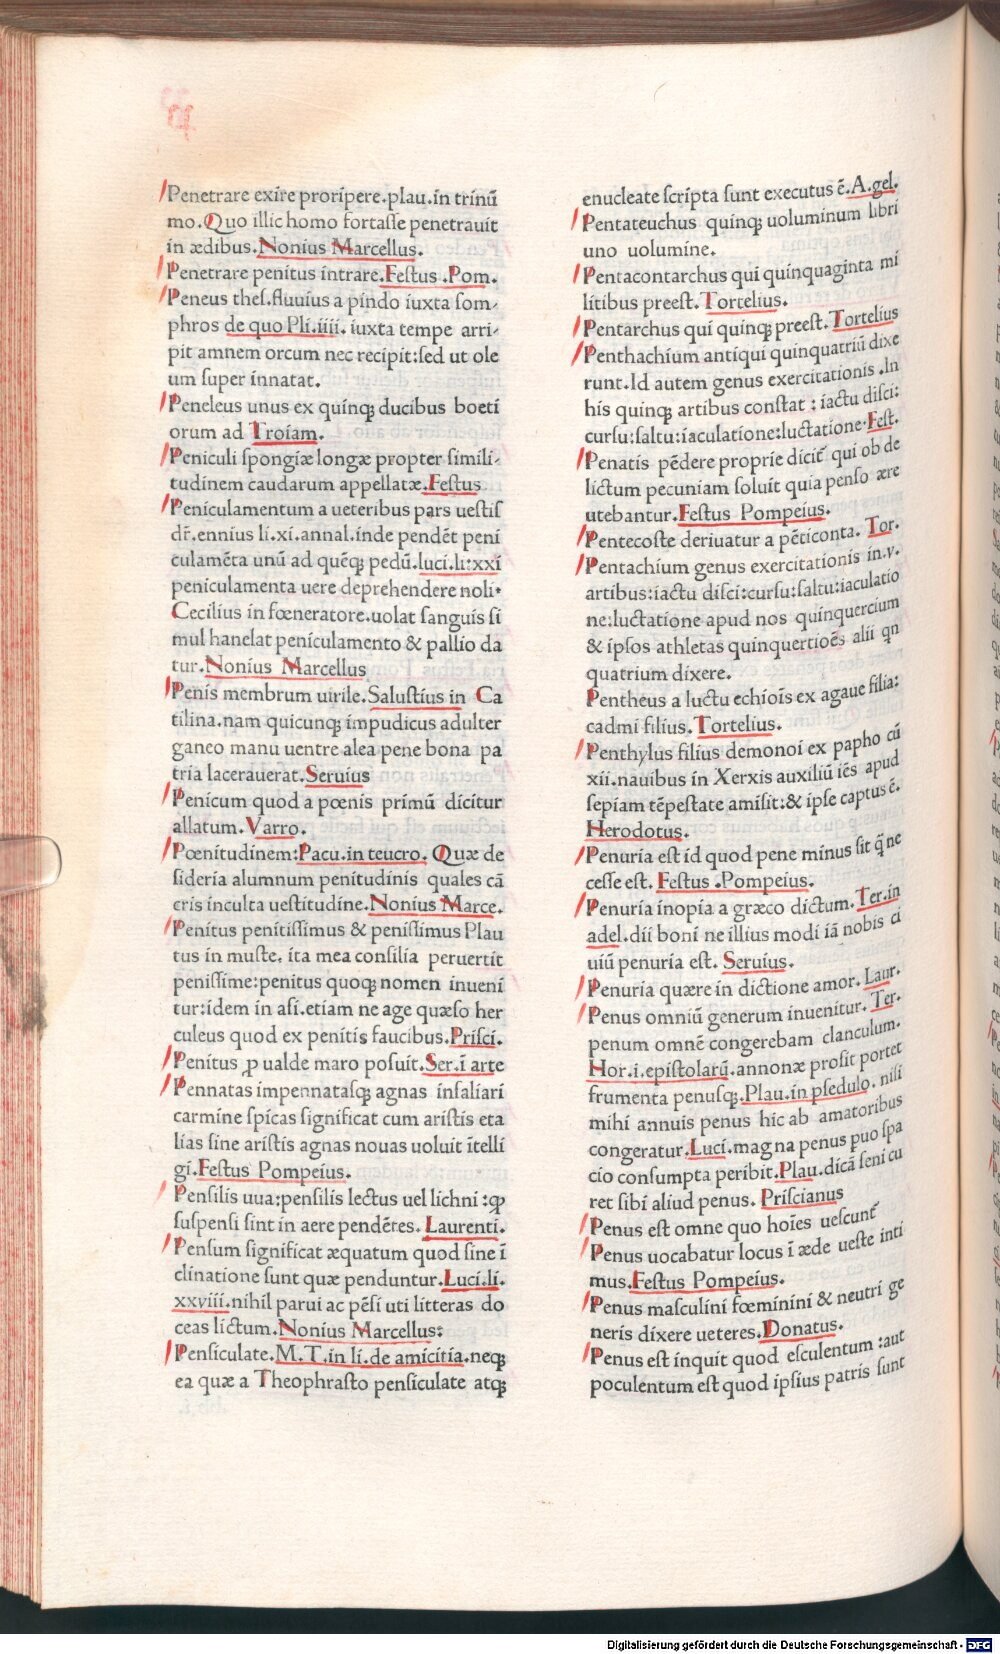 Penetrare exire proripere.plau.in trinū
mo.Quo illic homo fortaſſe penetrauit
in ædibus.Nonius Marcellus.
Penetrare penitus intrare.Feſtus .Pom.
Peneus theſ.fluuius a pindo iuxta ſom-
phros de quo Pli.iiii. iuxta tempe arri-
pit amnem orcum nec recipit:ſed ut ole
um ſuper innatat.
Peneleus unus ex quinqꝫ ducibus boeti
orum ad Troiam.
Peniculi ſpongiæ longæ propter ſimili-
tudinem caudarum appellatæ.Feſtus
Peniculamentum a ueteribus pars ueſtiſ
dr̄.ennius li.xi.annal.inde pendēt peni
culamēta unū ad quēqꝫ pedū.luci.li:xxi
peniculamenta uere deprehendere noli.
Cecilius in fœneratore.uolat ſanguis ſi
mul hanelat peniculamento & pallio da
tur.Nonius Marcellus
Penis membrum uirile.Saluſtius in Ca
tilina.nam quicunqꝫ impudicus adulter
ganeo manu uentre alea pene bona pa
tria lacerauerat.Seruius
Penicum quod a pœnis primū dicitur
allatum.Varro.
Pœnitudinem:Pacu.in teucro.Quæ de
ſideria alumnum penitudinis quales cā
cris inculta ueſtitudine.Nonius Marce.
Penitus penitiſſimus & peniſſimus Plau
tus in muſte. ita mea conſilia peruertit
peniſſime:penitus quoqꝫ nomen inueni
tur:idem in aſi.etiam ne age quæſo her
culeus quod ex penitis faucibus.Priſci.
Penitus ꝓ ualde maro poſuit.Ser.ī arte
Pennatas impennataſqꝫ agnas inſaliari
carmine ſpicas ſignificat cum ariſtis eta
lias ſine ariſtis agnas nouas uoluit ītelli
gi.Feſtus Pompeius.
Penſilis uua:penſilis lectus uel lichni :ꝙ
ſuſpenſi ſint in aere pendētes. Laurenti.
Penſum ſignificat æquatum quod ſine ī
clinatione ſunt quæ penduntur.Luci.li.
xxviii.nihil parui ac pēſi uti litteras do
ceas lictum.Nonius Marcellus:
Penſiculate.M.T.in li.de amicitia.neqꝫ
ea quæ a Theophraſto penſiculate atqꝫ
enucleate ſcripta ſunt executus ē.A.gel.
Pentateuchus quinqꝫ uoluminum libri
uno uolumine.
Pentacontarchus qui quinquaginta mi
litibus preeſt.Tortelius.
Pentarchus qui quinqꝫ preeſt.Tortelius
Penthachium antiqui quinquatriū dixe
runt.Id autem genus exercitationis .In
his quinqꝫ artibus conſtat : iactu diſci:
curſu:ſaltu:iaculatione:luctatione.Feſt.
Penatis pēdere proprie dicit̄ qui ob de
lictum pecuniam ſoluit quia penſo ære
utebantur.Feſtus Pompeius.
Pentecoſte deriuatur a pēticonta. Tor.
Pentachium genus exercitationis in.v.
artibus:iactu diſci:curſu:ſaltu:iaculatio
ne:luctatione apud nos quinquercium
& ipſos athletas quinquertioēs alii qn
quatrium dixere.
Pentheus a luctu echiois̄ ex agaue filia:
cadmi filius.Tortelius.
Penthylus filius demonoi ex papho cū
xii.nauibus in Xerxis auxiliū iēs apud
ſepiam tēpeſtate amiſit:& ipſe captus ē.
Herodotus.
Penuria eſt id quod pene minus ſit q̄ ne
ceſſe eſt. Feſtus .Pompeius.
Penuria inopia a græco dictum.Ter.in
adel.dii boni ne illius modi iā nobis ci
uiū penuria eſt. Seruius.
Penuria quære in dictione amor. Laur.
Penus omniū generum inuenitur. Ter.
penum omnē congerebam clanculum.
Hor.i.epiſtolarū.annonæ proſit portet
frumenta penuſqꝫ.Plau.in pſedulo. niſi
mihi annuis penus hic ab amatoribus
congeratur.Luci.magna penus puo ſpa
cio conſumpta peribit.Plau.dicā ſeni cu
ret ſibi aliud penus. Priſcianus
Penus eſt omne quo hoīes ueſcunt̄
Penus uocabatur locus ī æde ueſte inti
mus.Feſtus Pompeius.
Penus maſculini fœminini & neutri ge
neris dixere ueteres.Donatus.
Penus eſt inquit quod eſculentum :aut
poculentum eſt quod ipſius patris ſunt
Digitalisierung gefördert durch die Deutsche Forschungsgemeinschaft - DFG